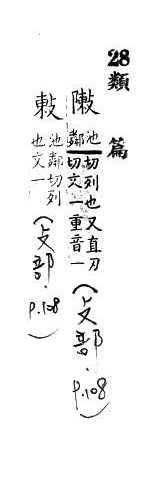 28 類篇
敶 池鄰切列也又直刃切文一重音一（攴部．P.108）
池鄰切列也文一（攴部．P.108）